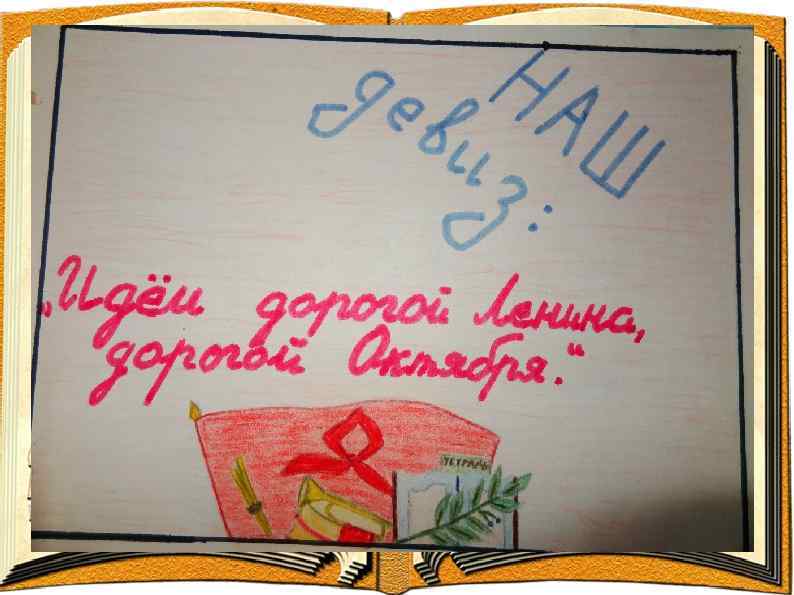 НАШ
девиз:
„Идём дорогой Ленина,
дорогой Октября.“
ТЕТРАДЬ